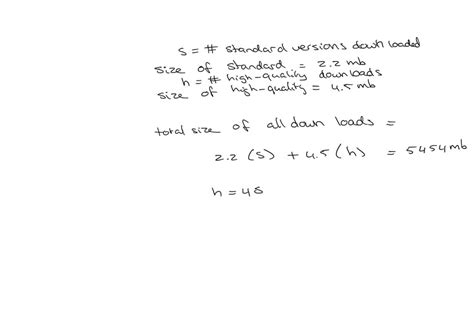 s = # standard versions downloaded
size of standard = 2.2 mb
h = # high-quality downloads
size of high-quality = 4.5 mb
total size of all down loads =
2.2 (s) + 4.5 (h) = 5454 mb
h = 4s